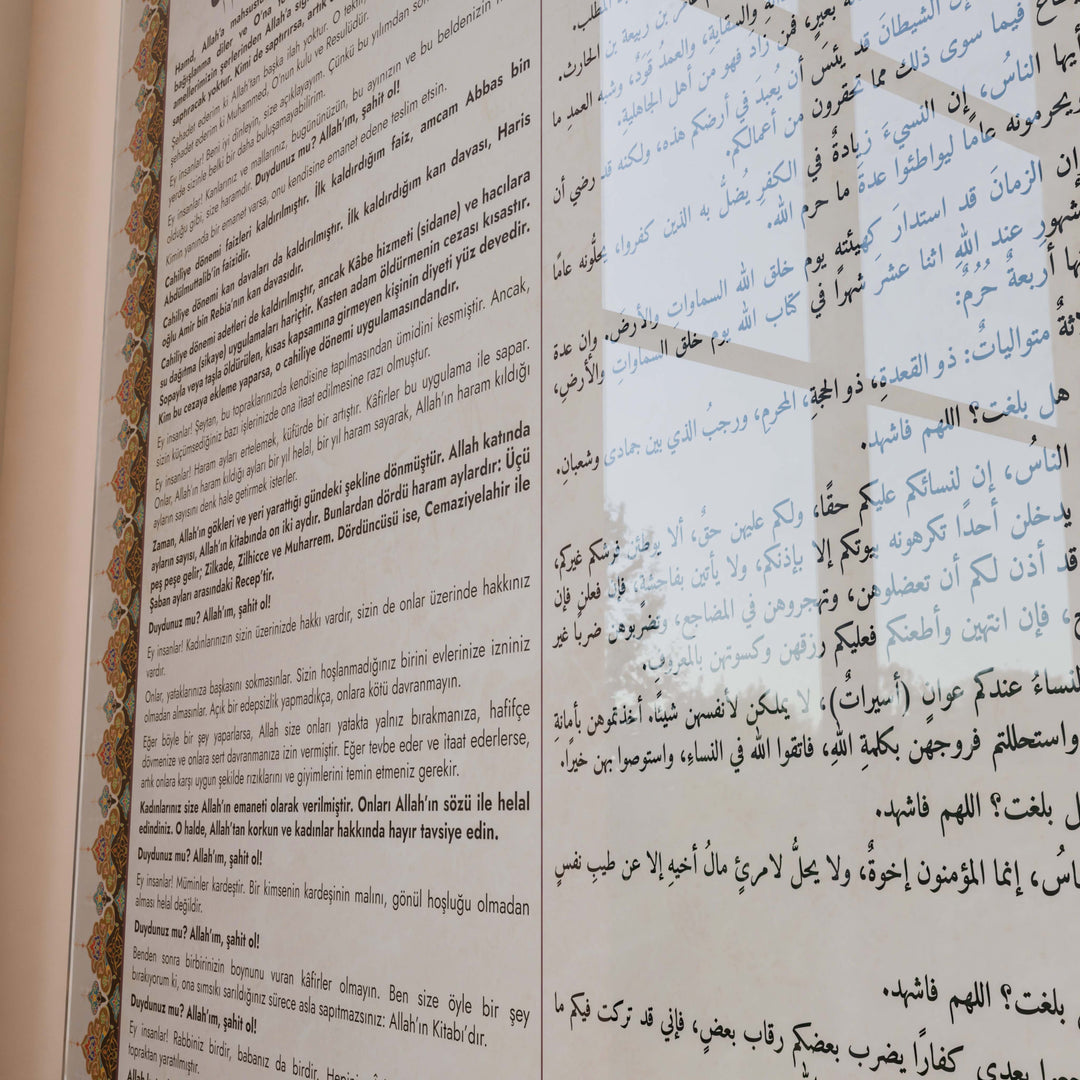 Hamd, Allah'a mahsustur
bağışlanma diler ve O'na
amellerimizin şerlerinden Allah'a
saptıracak yoktur. Kimi de saptırırsa, artık
Şehadet ederim ki Allah'tan başka ilah yoktur. O tektir,
şehadet ederim ki Muhammed, O'nun kulu ve Resulüdür.
Ey insanlar! Beni iyi dinleyin, size açıklayayım. Çünkü bu yılımdan sonra
yerde sizinle belki bir daha buluşamayabilirim.
Ey insanlar! Kanlarınız ve mallarınız, bugününüzün, bu ayınızın ve bu beldenizin
olduğu gibi, size haramdır. Duydunuz mu? Allah'ım, şahit ol!
Kimin yanında bir emanet varsa, onu kendisine emanet edene teslim etsin.
Cahiliye dönemi faizleri kaldırılmıştır. İlk kaldırdığım faiz, amcam Abbas bin
Abdülmuttalib'in faizidir.
Cahiliye dönemi kan davaları da kaldırılmıştır. İlk kaldırdığım kan davası, Haris
oğlu Amir bin Rebia'nın kan davasıdır.
Cahiliye dönemi adetleri de kaldırılmıştır, ancak Kâbe hizmeti (sidane) ve hacılara
su dağıtma (sikaye) uygulamaları hariçtir. Kasten adam öldürmenin cezası kısastır.
Sopayla veya taşla öldürülen, kısas kapsamına girmeyen kişinin diyeti yüz devedir.
Kim bu cezaya ekleme yaparsa, o cahiliye dönemi uygulamasındandır.
Ey insanlar! Şeytan, bu topraklarınızda kendisine tapılmasından ümidini kesmiştir. Ancak,
sizin küçümsediğiniz bazı işlerinizde ona itaat edilmesine razı olmuştur.
Ey insanlar! Haram ayları ertelemek, küfürde bir artıştır. Kâfirler bu uygulama ile sapar.
Onlar, Allah'ın haram kıldığı ayları bir yıl helal, bir yıl haram sayarak, Allah'ın haram kıldığı
ayların sayısını denk hale getirmek isterler.
Zaman, Allah'ın gökleri ve yeri yarattığı gündeki şekline dönmüştür. Allah katında
ayların sayısı, Allah'ın kitabında on iki aydır. Bunlardan dördü haram aylardır: Üçü
peş peşe gelir; Zilkade, Zilhicce ve Muharrem. Dördüncüsü ise, Cemaziyelahir ile
Şaban ayları arasındaki Recep'tir.
Duydunuz mu? Allah'ım, şahit ol!
Ey insanlar! Kadınlarınızın sizin üzerinizde hakkı vardır, sizin de onlar üzerinde hakkınız
vardır.
Onlar, yataklarınıza başkasını sokmasınlar. Sizin hoşlanmadığınız birini evlerinize izniniz
olmadan almasınlar. Açık bir edepsizlik yapmadıkça, onlara kötü davranmayın.
Eğer böyle bir şey yaparlarsa, Allah size onları yatakta yalnız bırakmanıza, hafifçe
dövmenize ve onlara sert davranmanıza izin vermiştir. Eğer tevbe eder ve itaat ederlerse,
artık onlara karşı uygun şekilde rızıklarını ve giyimlerini temin etmeniz gerekir.
Kadınlarınız size Allah'ın emaneti olarak verilmiştir. Onları Allah'ın sözü ile helal
edindiniz. O halde, Allah'tan korkun ve kadınlar hakkında hayır tavsiye edin.
Duydunuz mu? Allah'ım, şahit ol!
Ey insanlar! Müminler kardeştir. Bir kimsenin kardeşinin malını, gönül hoşluğu olmadan
alması helal değildir.
Duydunuz mu? Allah'ım, şahit ol!
Benden sonra birbirinizin boynunu vuran kâfirler olmayın. Ben size öyle bir şey
bırakıyorum ki, ona sımsıkı sarıldığınız sürece asla sapıtmazsınız: Allah'ın Kitabı'dır.
Duydunuz mu? Allah'ım, şahit ol!
Ey insanlar! Rabbiniz birdir, babanız da birdir.
topraktan yaratılmıştır.
بن ربيعة بن الحارث.
والسقايةِ، والعمدُ قَوَدٌ، وشبه العمدِ ما
بعيرٍ، فمن زاد فهو من أهل الجاهليةِ.
إن الشيطانَ قد يئسَ أن يُعبدَ في أرضكم هذه، ولكنه قد رضي أن
فيما سوى ذلك مما تحقرون من أعمالكم.
أيها الناسُ، إن النسيءَ زيادةٌ في الكفرِ يُضلُّ به الذين كفروا، يحلُّونه عامًا
ويحرمونه عاما ليواطئوا عدةَ ما حرم الله.
إن الزمانَ قد استدارَ كهيئته يوم خلق الله السماواتِ والأرضَ. وإن عدة
الشهورِ عند اللهِ اثنا عشرَ شهرًا في كتاب الله يوم خلق السماواتِ والأرضِ،
أربعةٌ حُرُمٌ:
متوالياتٌ: ذو القعدةِ، ذو الحجةِ، المحرم، ورجبُ الذي بين جمادى وشعبانِ.
هل بلغت؟ اللهم فاشهد.
الناسُ، إن لنسائكم عليكم حقًا، ولكم عليهن حقٌ، ألا يوطئن فرشكم غيركم،
يدخلن أحدًا تكرهونه بيوتكم إلا بإذنكم، ولا يأتين بفاحشة، فإن فعلن فإن
قد أذن لكم أن تعضلوهن، وتهجروهن في المضاجع، وتضربوهن ضربًا غير
فإن انتهين وأطعنكم فعليكم رزقهن وكسوتهن بالمعروفِ.
النساءُ عندكم عوانٍ (أسيراتٌ)، لا يملكن لأنفسهن شيئًا. أخذتموهن بأمانةِ
واستحللتم فروجهن بكلمةِ اللهِ، فاتقوا الله في النساءِ، واستوصوا بهن خيرًا.
بلغت؟ اللهم فاشهد.
إنما المؤمنون إخوةٌ، ولا يحلُّ لامرئٍ مالُ أخيه إلا عن طيبِ نفسٍ
بلغت؟ اللهم فاشهد.
بعدي كفارًا يضرب بعضكم رقاب بعضٍ، فإني قد تركت فيكم ما